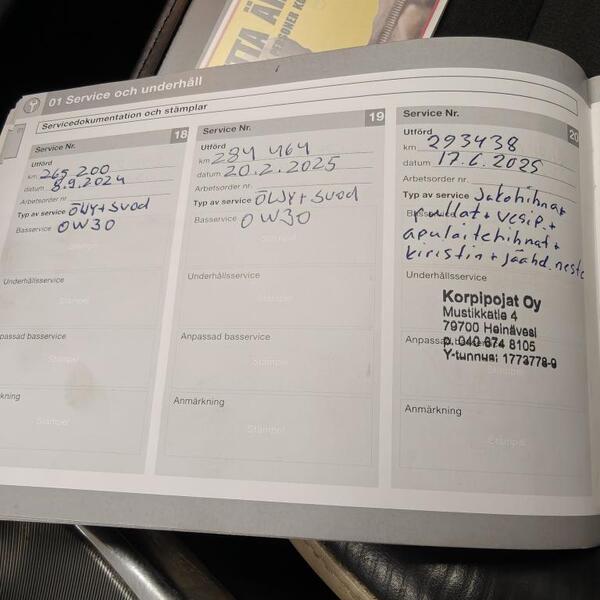 TTA ÄR
PERSONER KO
01 Service och underhåll
Servicedokumentation och stämplar
18
Service Nr.
Utförd
km 265 200
datum 8.9.2024
Arbetsorder nr.
Typ av service ÖLJY + SUOD
Basservice 0W30
Stämpel
Underhållsservice
Stämpel
passad basservice
Stämpel
kning
Stämpel
19
Service Nr.
Utförd
km 284 464
datum 20.2.2025
Arbetsorder nr.
Typ av service ÖLJY + SUOD
Basservice 0W30
Stämpel
Underhållsservice
Stämpel
Anpassad basservice
Stämpel
Anmärkning
Stämpel
20
Service Nr.
Utförd
km 293438
datum 17.6.2025
Arbetsorder nr.
Typ av service Jakohihna+
Basservice rullat + vesip. +
apulaitehihnat +
kiristin + jäähd.neste
Underhållsservice
Korpipojat Oy
Mustikkatie 4
79700 Heinävesi
Anpassad basservice
p. 040 674 8105
Y-tunnus: 1773778-9
Anmärkning
Stämpel